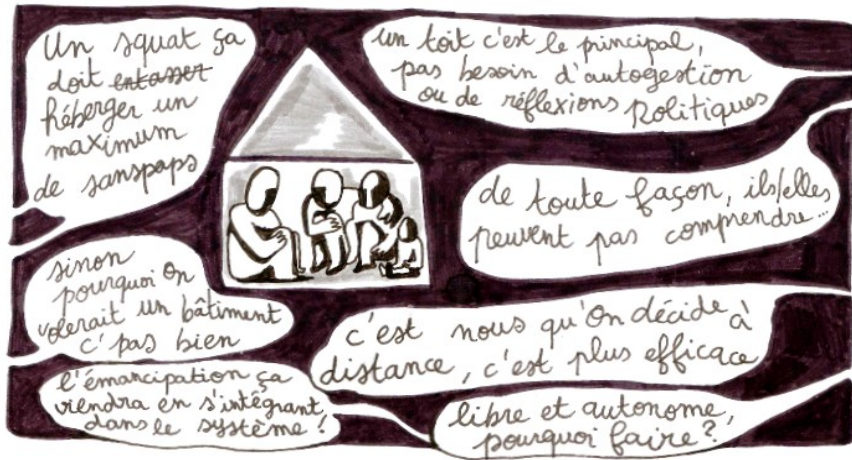 Un squat ça
doit entasser
héberger un
maximum
de sanspaps
un toit c'est le principal,
pas besoin d'autogestion
ou de réflexions politiques
de toute façon, ils/elles
peuvent pas comprendre...
sinon
pourquoi on
volerait un bâtiment
c' pas bien
c'est nous qu'on décide à
distance, c'est plus efficace
l'émancipation ça
viendra en s'intégrant
dans le système !
libre et autonome,
pourquoi faire ?